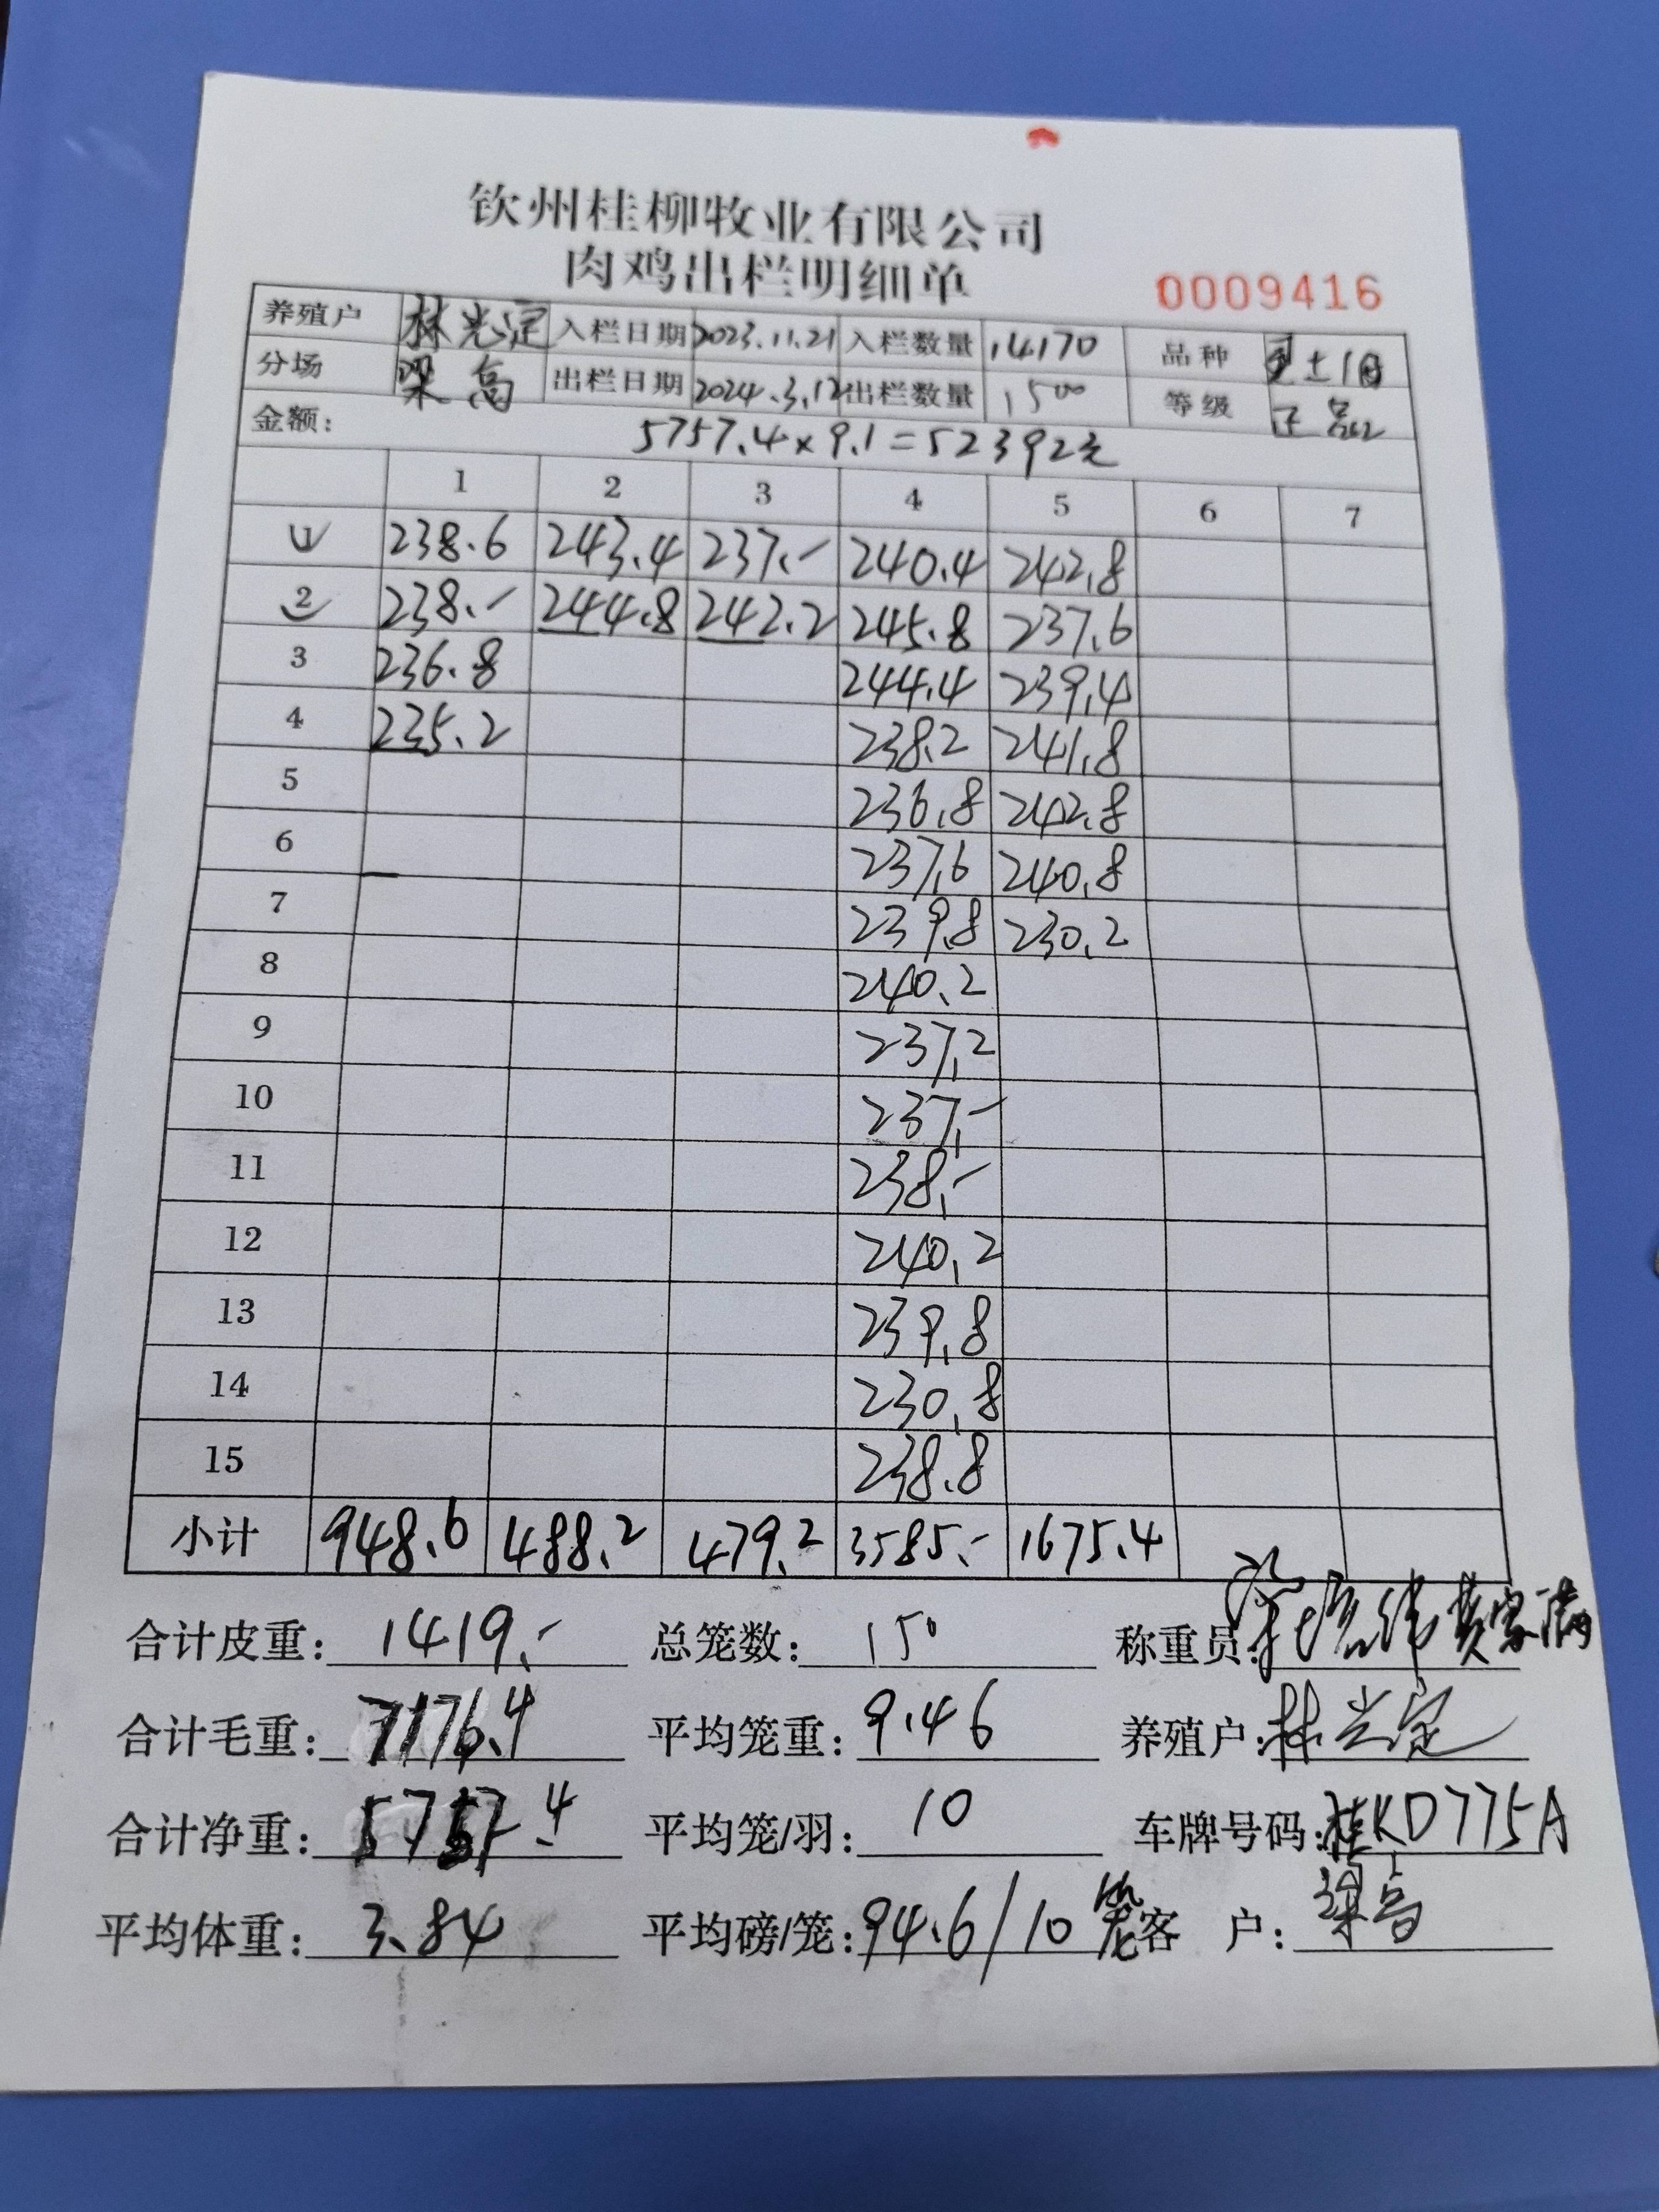 钦州桂柳牧业有限公司
肉鸡出栏明细单
0009416
养殖户 林光定 入栏日期 2023.11.21 入栏数量 14170 品种 土1母
分场 梁高 出栏日期 2024.3.12 出栏数量 1500 等级 正品
金额: 5757.4×9.1=52392元
1 2 3 4 5 6 7
1 238.6 243.4 237.- 240.4 242.8
2 238.- 244.8 242.2 245.8 237.6
3 236.8 244.4 239.4
4 235.2 238.2 241.8
5 236.8 242.8
6 237.6 240.8
7 239.8 230.2
8 240.2
9 237.2
10 237.-
11 238.-
12 240.2
13 239.8
14 230.8
15 238.8
小计 948.6 488.2 479.2 3585.- 1675.4
合计皮重: 1419.- 总笼数: 150 称重员: 黄家满
合计毛重: 7176.4 平均笼重: 9.46 养殖户: 林光定
合计净重: 5757.4 平均笼/羽: 10 车牌号码: 桂KD775A
平均体重: 3.84 平均磅/笼: 94.6/10笼 客 户: 梁高